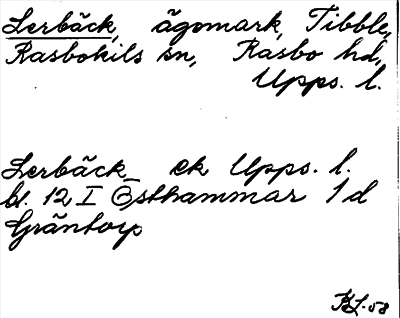 Lerbäck, ägomark, Tibble,
Rasbokils sn, Rasbo hd,
Upps. l.
Lerbäck ek Upps. l.
bl. 12 I Östhammar 1 d
Gräntorp
KL. 58